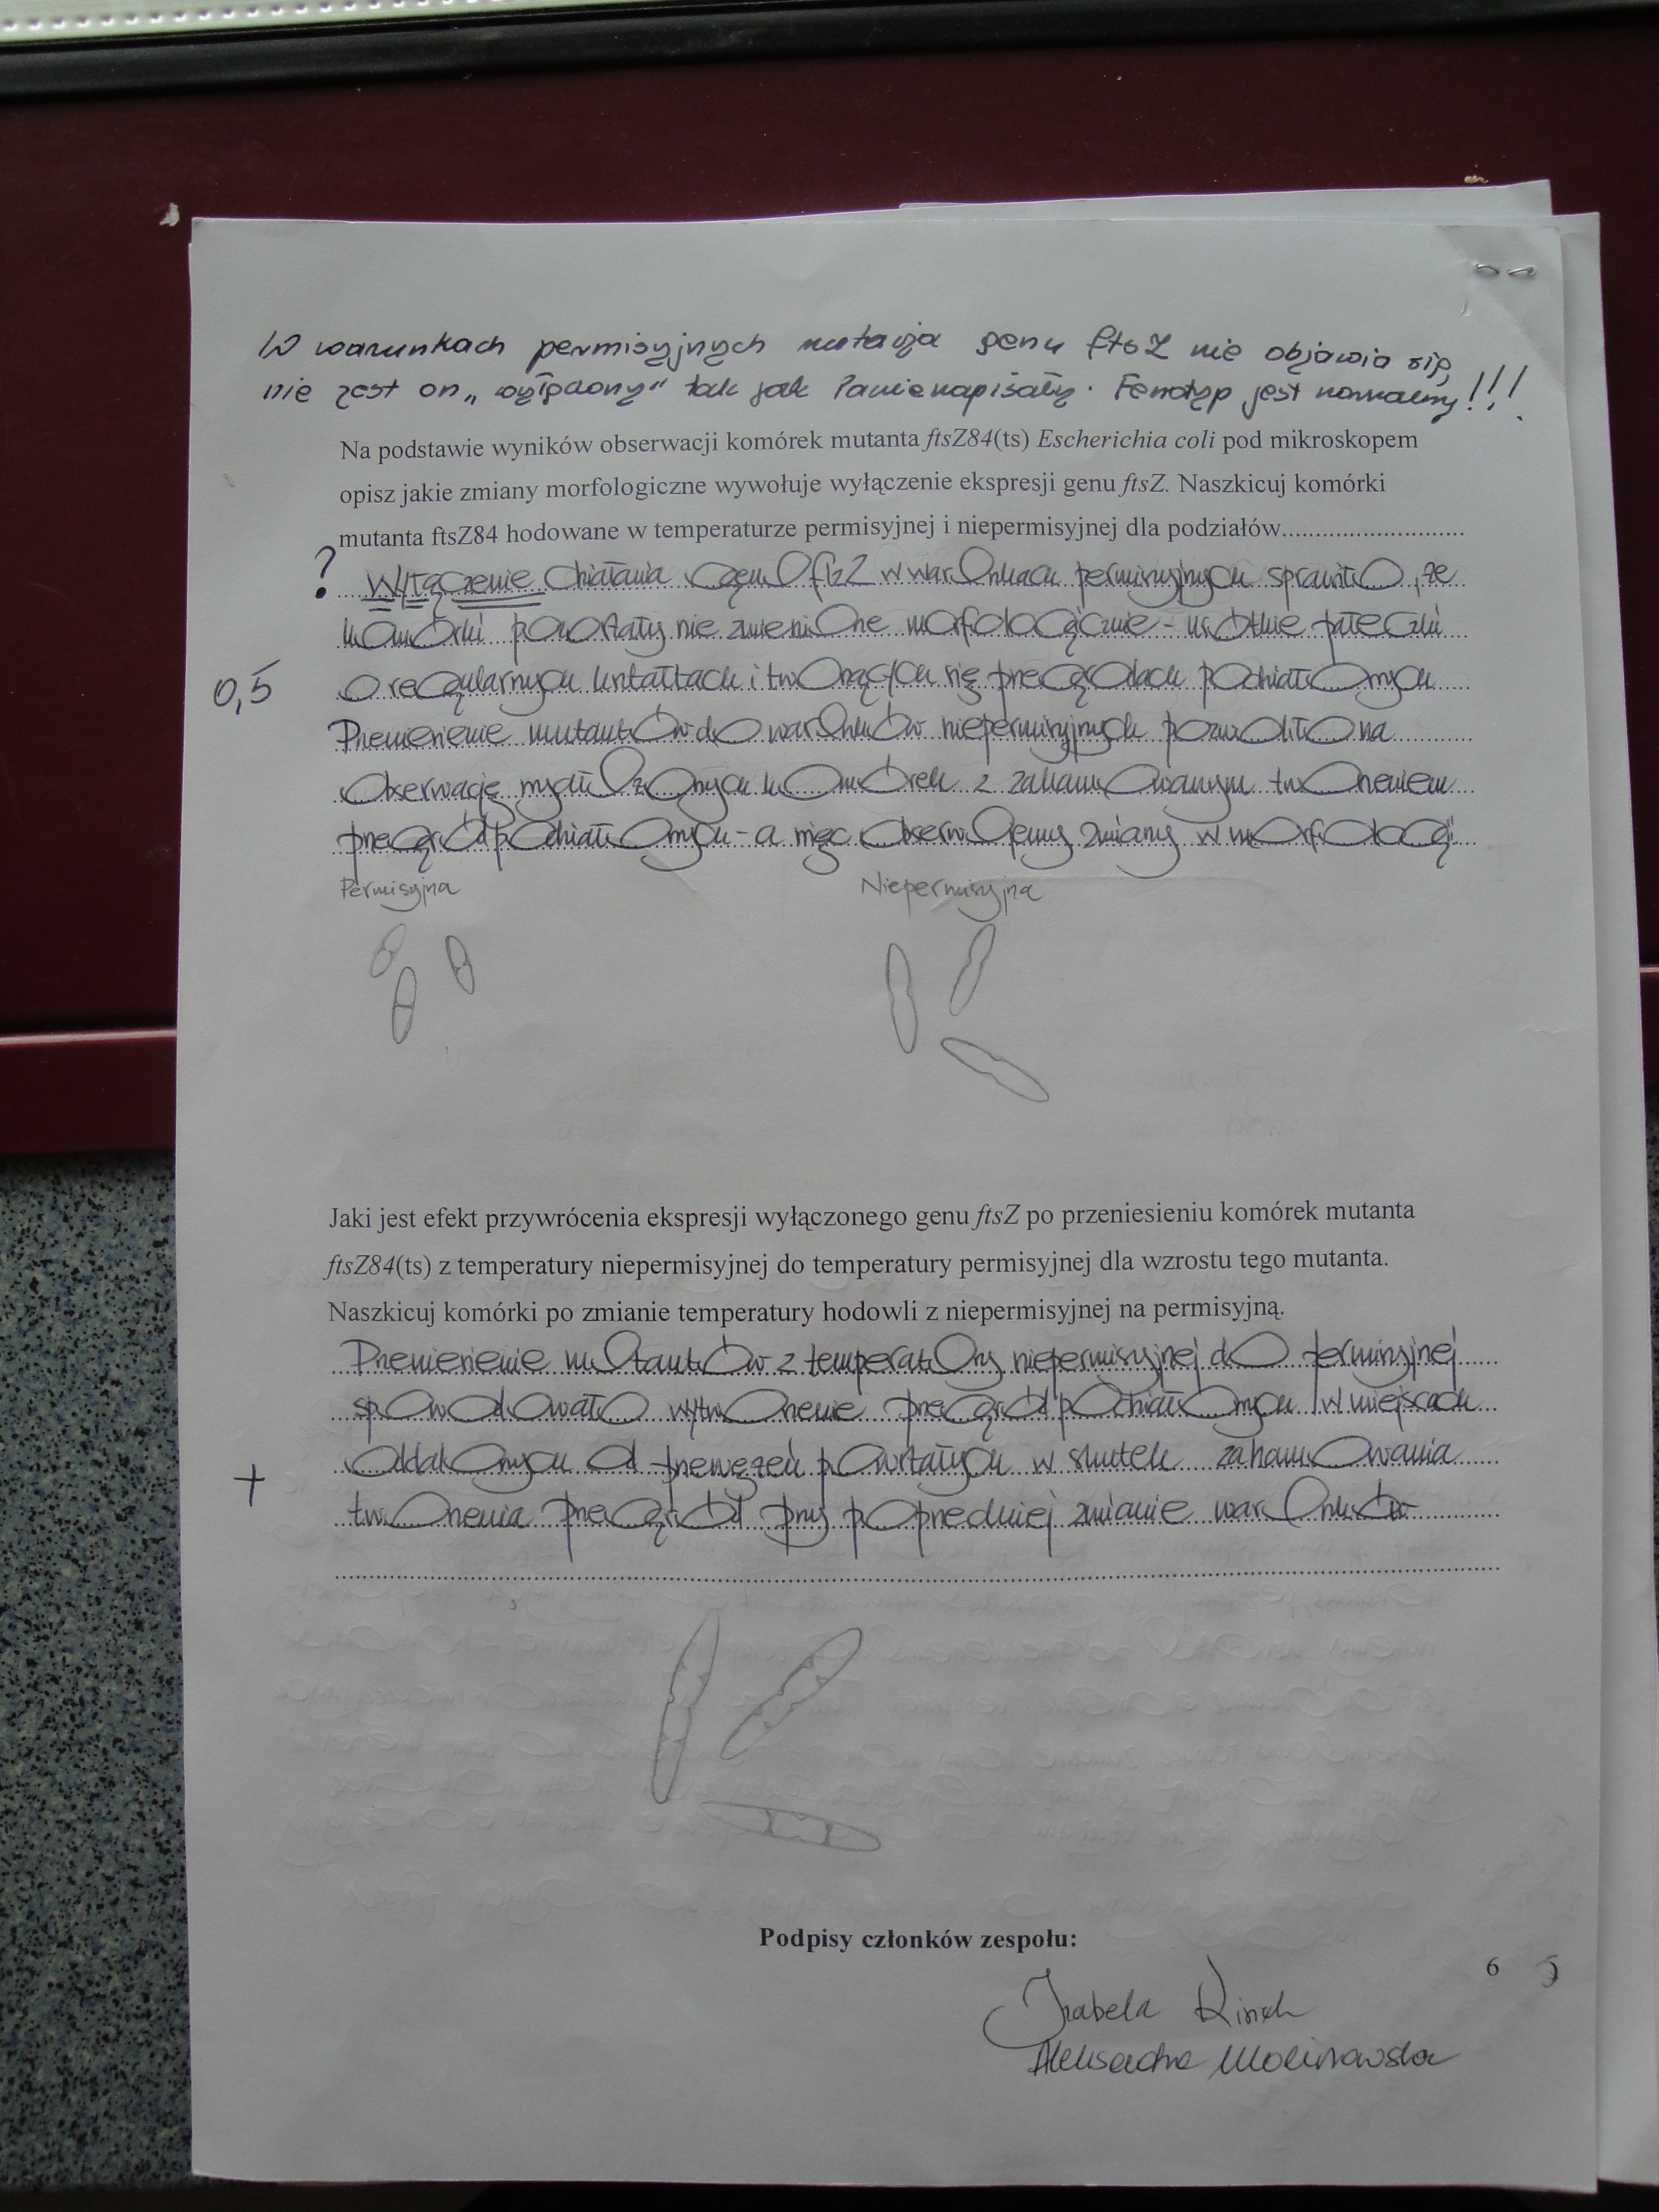 W warunkach permisyjnych mutacja genu ftsZ nie objawia się,
nie jest on „wyłączony" tak jak Panie napisały. Fenotyp jest normalny!!!
Na podstawie wyników obserwacji komórek mutanta ftsZ84(ts) Escherichia coli pod mikroskopem
opisz jakie zmiany morfologiczne wywołuje wyłączenie ekspresji genu ftsZ. Naszkicuj komórki
mutanta ftsZ84 hodowane w temperaturze permisyjnej i niepermisyjnej dla podziałów
? Wyłączenie działania genu ftsZ w warunkach permisyjnych sprawiło, że
komórki pozostały nie zmienione morfologicznie - krótkie pałeczki
0,5 o regularnych kształtach i tworzących się przegrodach podziałowych
Przeniesienie mutantów do warunków niepermisyjnych pozwoliło na
obserwację wydłużonych komórek z zahamowanym tworzeniem
przegród podziałowych - a więc obserwujemy zmiany w morfologii
Permisyjna Niepermisyjna
Jaki jest efekt przywrócenia ekspresji wyłączonego genu ftsZ po przeniesieniu komórek mutanta
ftsZ84(ts) z temperatury niepermisyjnej do temperatury permisyjnej dla wzrostu tego mutanta.
Naszkicuj komórki po zmianie temperatury hodowli z niepermisyjnej na permisyjną.
Przeniesienie mutantów z temperatury niepermisyjnej do permisyjnej
spowodowało wytworzenie przegród podziałowych w miejscach
+ oddalonych od przewężeń powstałych w skutek zahamowania
tworzenia przegród przy poprzedniej zmianie warunków
Podpisy członków zespołu:
6 5
Izabela
Aleksandra